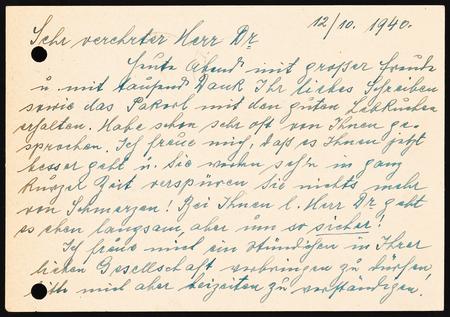 12/10. 1940.
Sehr verehrter Herr Dr
Heute Abend mit grosser Freude
u. mit tausend Dank Ihr liebes Schreiben
sowie das Paket mit den guten Lebkuchen
erhalten. Habe schon sehr oft von Ihnen ge-
sprochen. Ich freue mich, dass es Ihnen jetzt
besser geht u. Sie werden sehn in ganz
kurzer Zeit verspüren Sie nichts mehr
von Schmerzen! Bei Ihnen l. Herr Dr. geht
es eben langsam, aber um so sicher!
Ich freue mich ein Stündchen in Ihrer
lieben Gesellschaft verbringen zu dürfen,
bitte mich aber beizeiten zu verständigen!